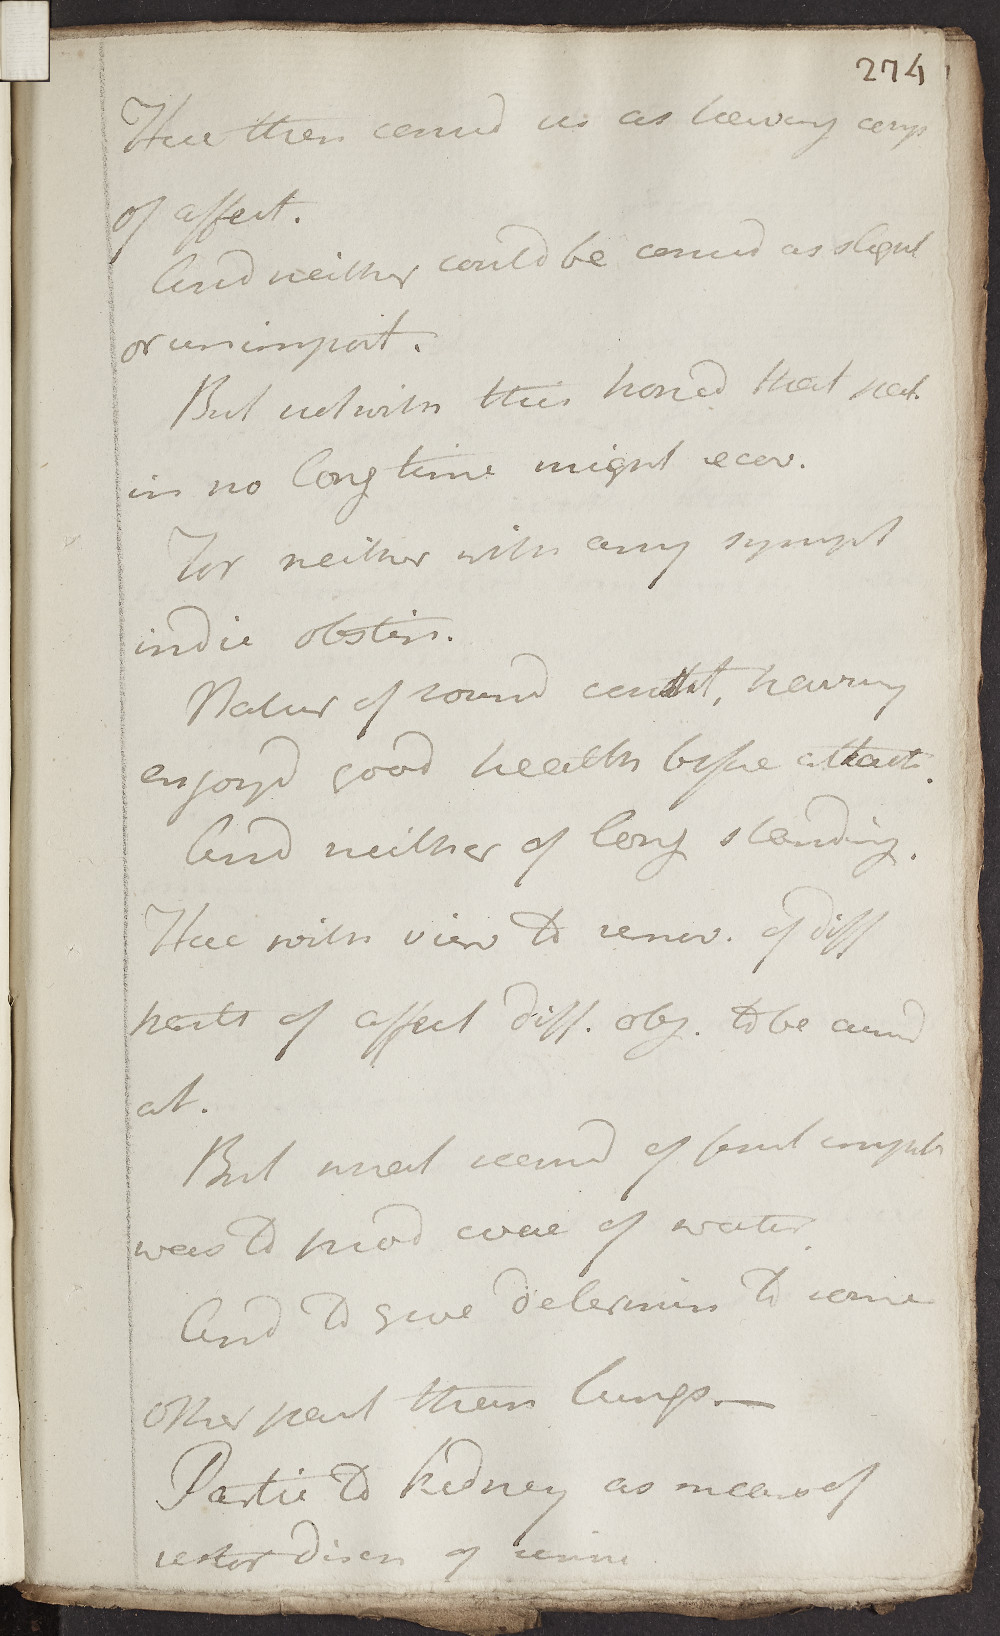 274
Here then consid us as having comp
of affect.
And neither could be consid as slight
or unimport.
But notwith this hoped that pat.
in no long time might recov.
For neither with any sympt
indic obstin.
Natur of sound constit, having
enjoyd good health before attack.
And neither of long standing.
Here with view to remov. of diff
parts of affect diff. obj. to be aimd
at.
But most of
was to prod evac of water.
And to give determin to some
other part than lungs.—
Partic to kidney as means of
restor disch of urine